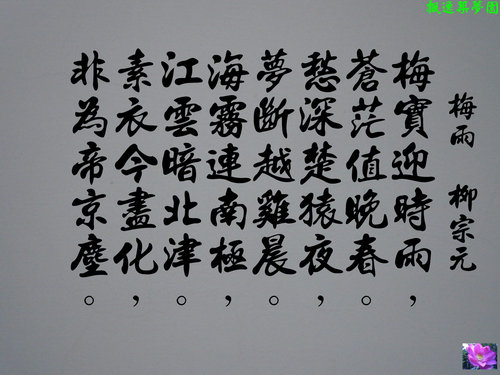 楓逸築夢園
梅雨　柳宗元
梅實迎時雨，
蒼茫值晚春。
愁深楚猿夜，
夢斷越雞晨。
海霧連南極，
江雲暗北津。
素衣今盡化，
非為帝京塵。